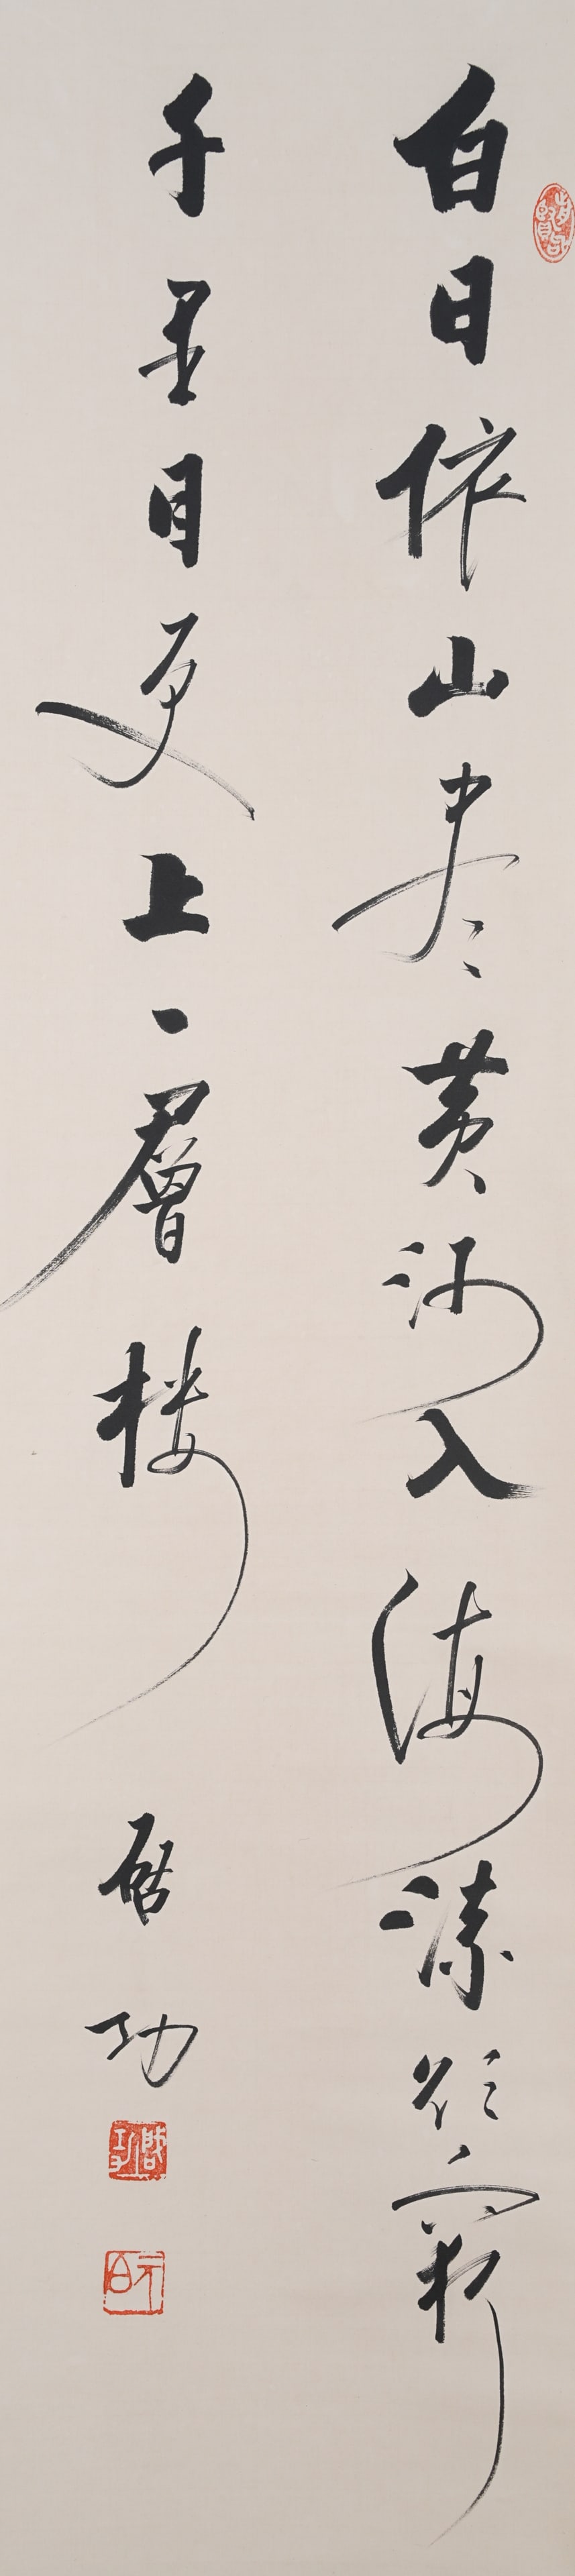 白日依山尽黄河入海流欲穷
千里目更上一層楼
启功
启功
元白